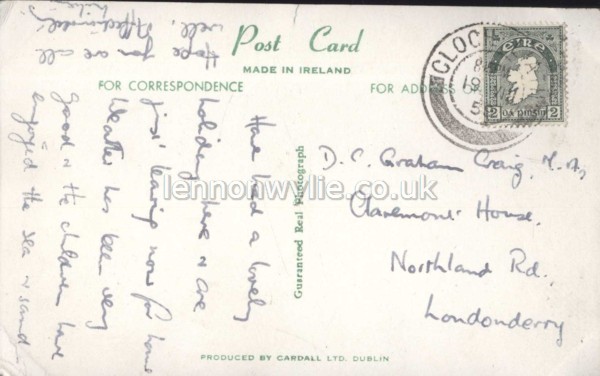 Post Card
MADE IN IRELAND
FOR CORRESPONDENCE
FOR ADDRESS
CLOC
19
5
éire
2 DA PINGIN 2
Have had a lovely
holiday here & are
just leaving now for home
Weather has been very
good & the children have
enjoyed the sea & sand
Hope you are all
well.
Affectionately
Guaranteed Real Photograph
D. C. Graham Craig, M.A.,
Claremont House,
Northland Rd.,
Londonderry
lennonwylie.co.uk
PRODUCED BY CARDALL LTD. DUBLIN